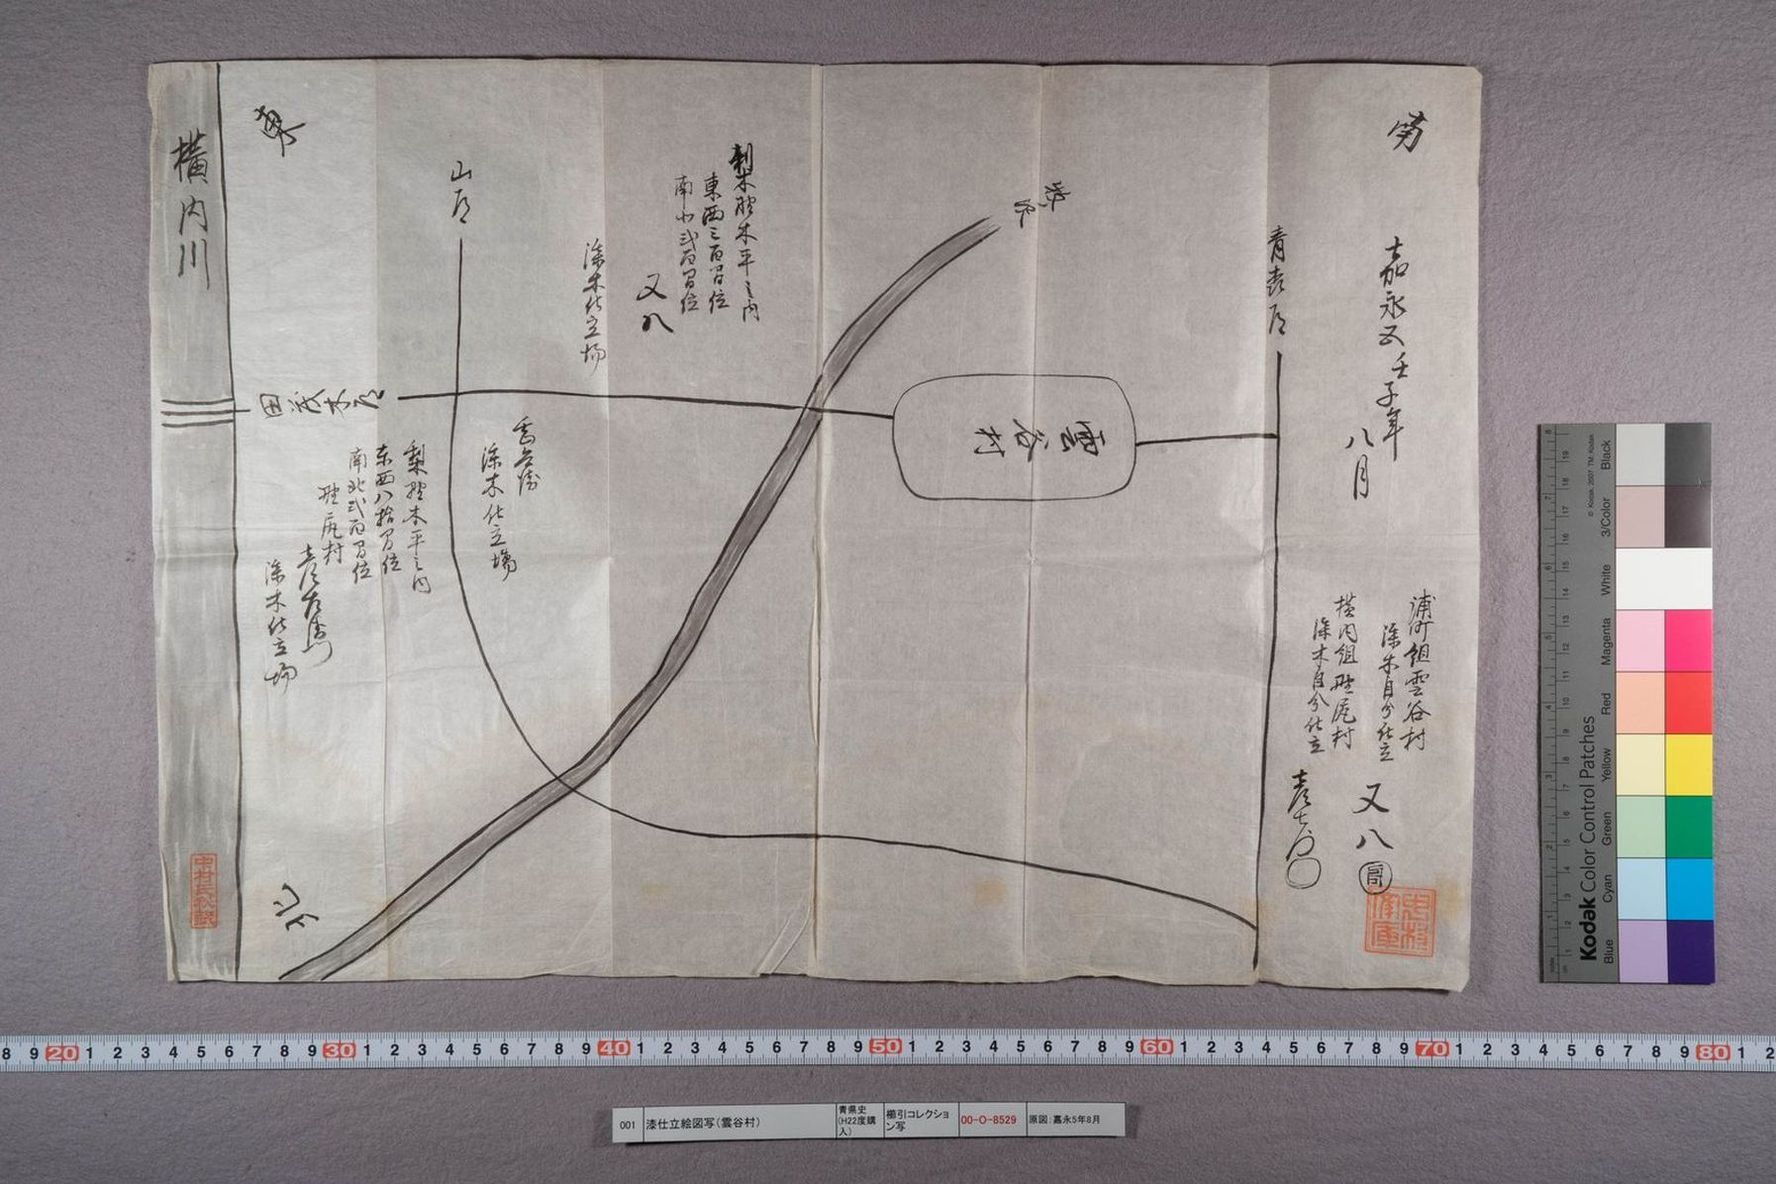 嘉永五壬子年
八月
浦町組雲谷村
漆木自分仕立
又八
横内組野尻村
漆木自分仕立
雲谷村
梨野木平之内
東西三百間位
南北弐百間位
又八
漆木仕立場
漆木仕立場
山道
梨野木平之内
東西八拾間位
南北弐百間位
野尻村
漆木仕立場
田茂木道
東
北
横内川
中村氏秋録
001
漆仕立絵図写(雲谷村)
青県史
(H22度購
入)
櫛引コレクショ
ン写
00-O-8529
原図:嘉永5年8月
Kodak Color Control Patches
© Kodak, 2007 TM: Kodak
Blue
Cyan
Green
Yellow
Red
Magenta
White
3/Color
Black
8 9 20 1 2 3 4 5 6 7 8 9 30 1 2 3 4 5 6 7 8 9 40 1 2 3 4 5 6 7 8 9 50 1 2 3 4 5 6 7 8 9 60 1 2 3 4 5 6 7 8 9 70 1 2 3 4 5 6 7 8 9 80 1 2